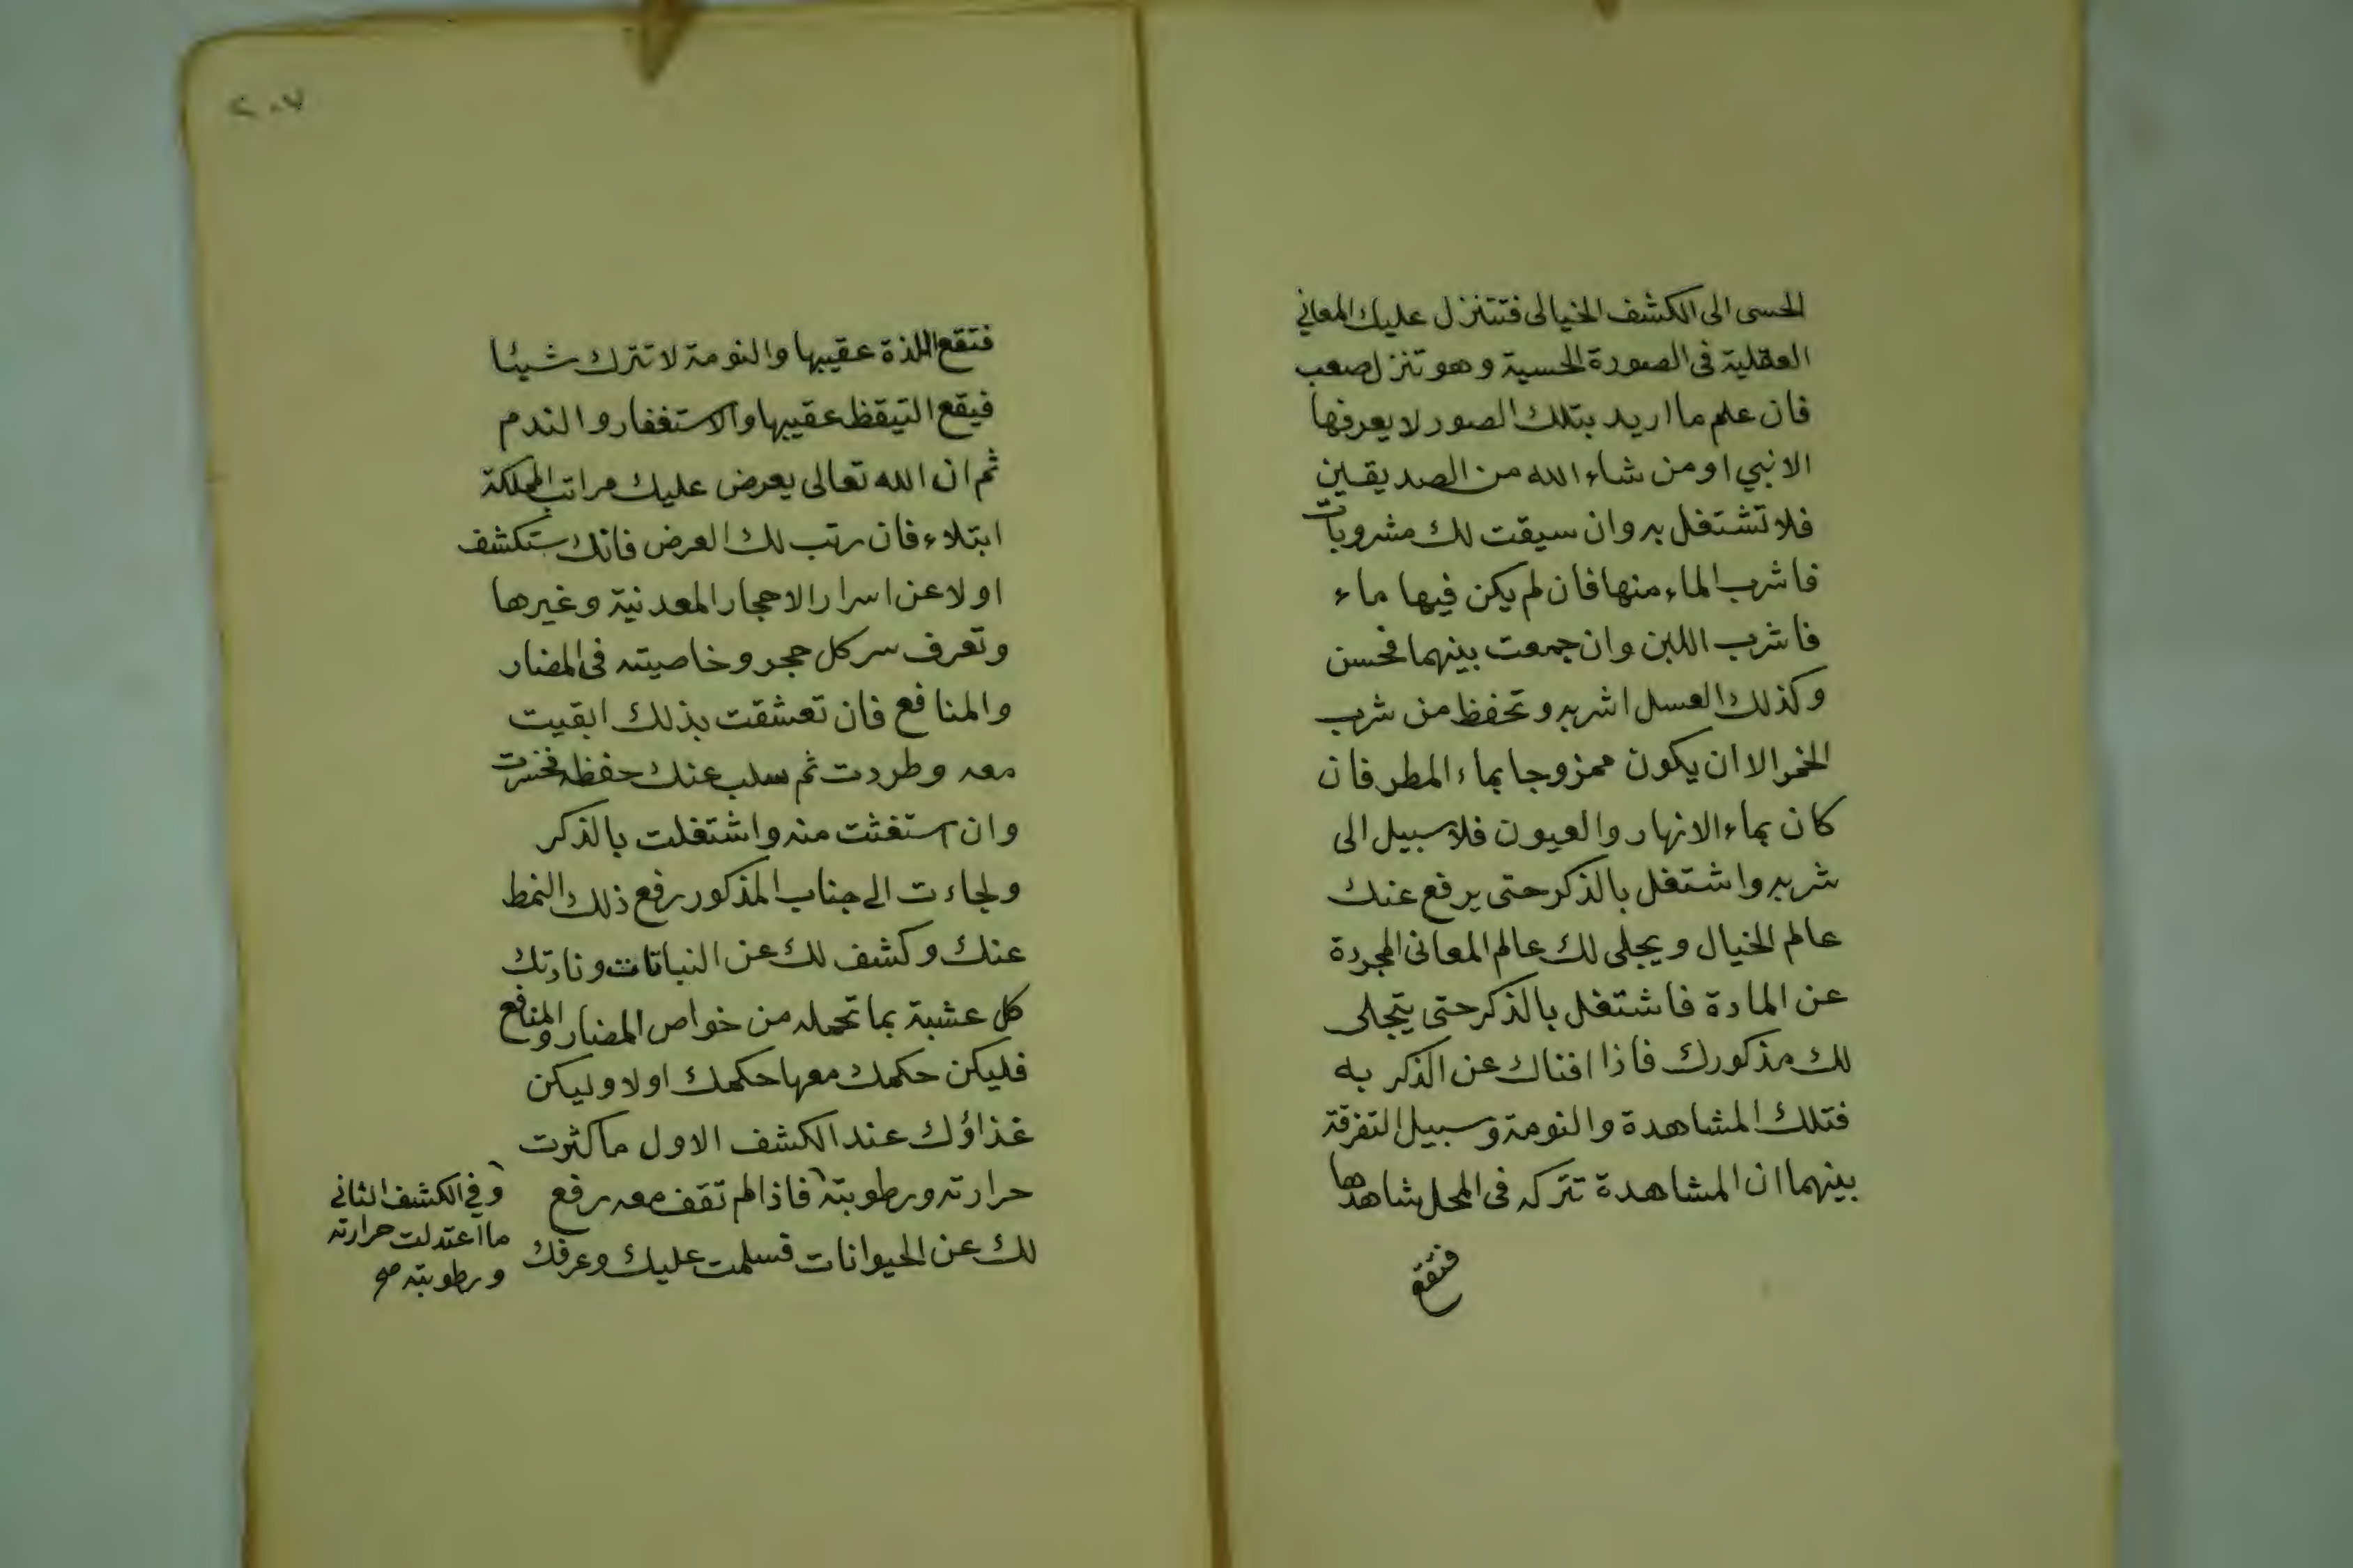 الحسى الى الكشف الخيالى فتتنزل عليك المعاني
العقلية فى الصورة الحسية وهو تنزل صعب
فان علم ما اريد بتلك الصور لا يعرفها
الا نبي او من شاء الله من الصديقين
فلا تشتغل به وان سيقت لك مشروبات
فاشرب الماء منها فان لم يكن فيها ماء
فاشرب اللبن وان جمعت بينهما فحسن
وكذلك العسل اشربه وتحفظ من شرب
الخمر الا ان يكون ممزوجا بماء المطر فان
كان بماء الانهار والعيون فلا سبيل الى
شربه واشتغل بالذكر حتى يرفع عنك
عالم الخيال ويجلى لك عالم المعانى المجردة
عن المادة فاشتغل بالذكر حتى يتجلى
لك مذكورك فاذا افناك عن الذكر به
فتلك المشاهدة والنومة وسبيل التفرقة
بينهما ان المشاهدة تتركه فى المحل شاهدها
فتقع
٢٠٧
فتقع اللذة عقيبها والنومة لا تترك شيئا
فيقع التيقظ عقيبها والاستغفار والندم
ثم ان الله تعالى يعرض عليك مراتب المملكة
ابتلاء فان رتب لك العرض فانك ستكشف
اولا عن اسرار الاحجار المعدنية وغيرها
وتعرف سر كل حجر وخاصيته فى المضار
والمنافع فان تعشقت بذلك ابقيت
معه وطردت ثم سلب عنك حفظه فخسرت
وان استغثت منه واشتغلت بالذكر
ولجاءت الى جناب المذكور رفع ذلك النمط
عنك وكشف لك عن النباتات ونادتك
كل عشبة بما تحمله من خواص المضار والمنافع
فليكن حكمك معها حكمك اولا وليكن
غذاؤك عند الكشف الاول ما كثرت
حرارته ورطوبته فاذا لم تقف معه رفع
لك عن الحيوانات فسلمت عليك وعرفك
وفي الكشف الثاني
ما اعتدلت حرارته
ورطوبته صح